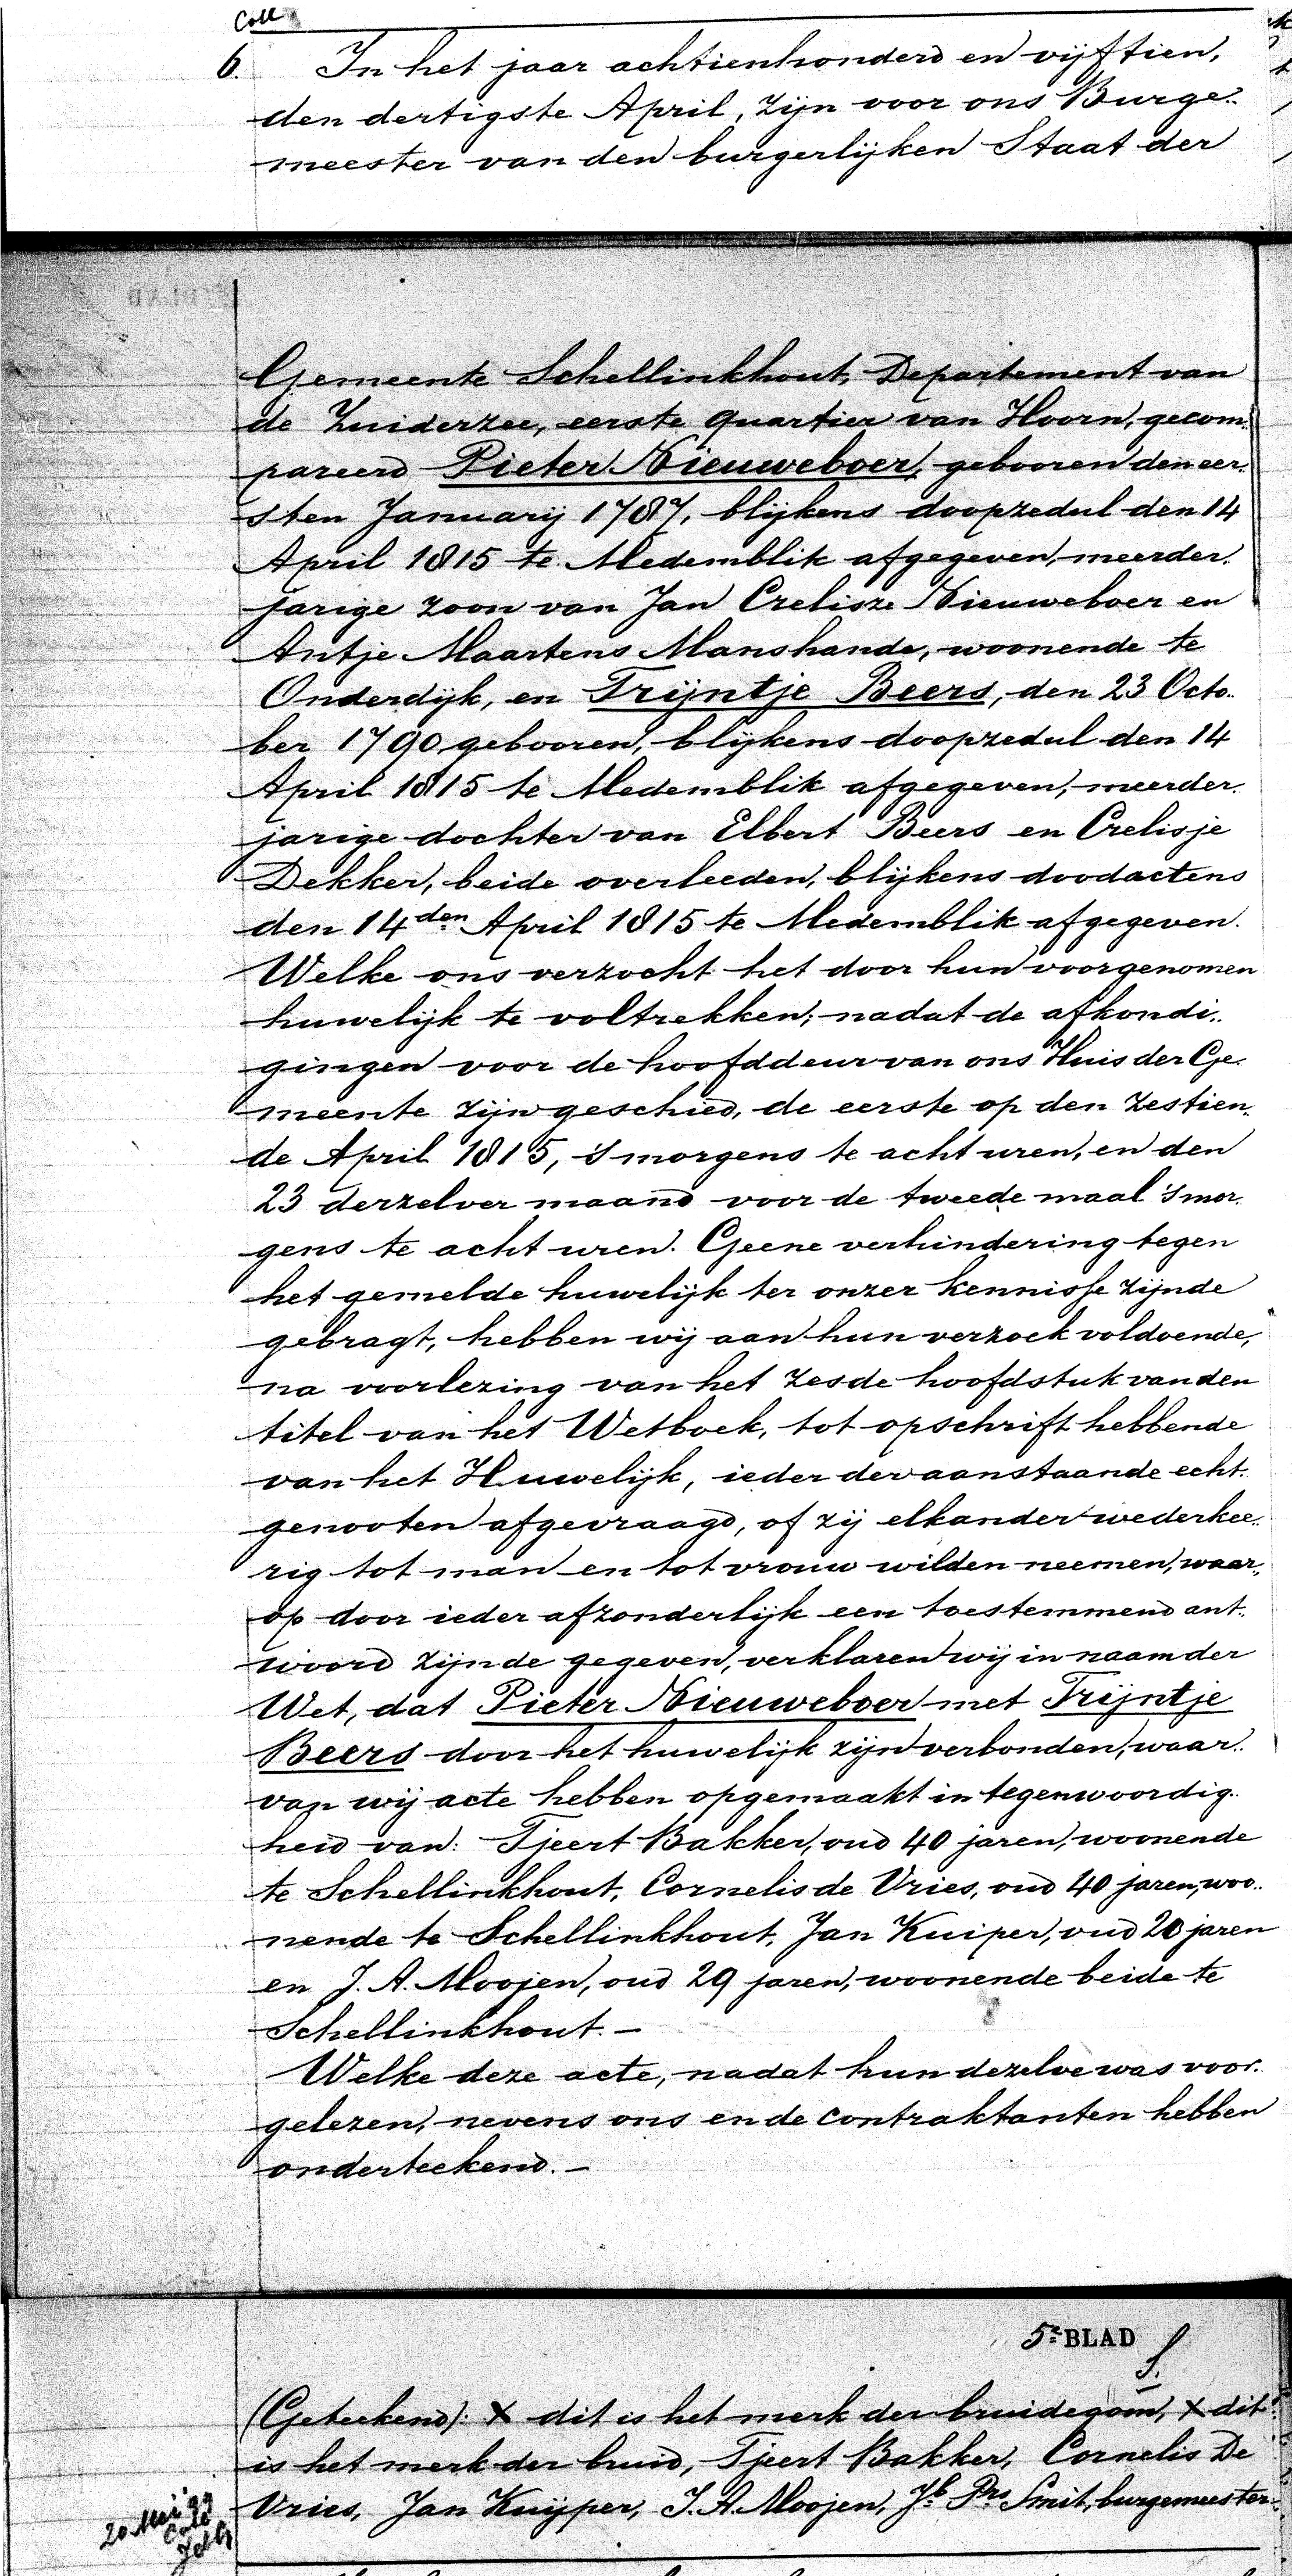 Coll
6. In het jaar achtienhonderd en vijftien,
den dertigste April, zijn voor ons Burge„
meester van den burgerlijken Staat der
Gemeente Schellinkhout, Departement van
de Zuiderzee, eerste quartier van Hoorn, gecom„
pareerd Pieter Nieuweboer, gebooren den eer„
sten Januarij 1787, blijkens doopzedul den 14
April 1815 te Medemblik afgegeven, meerder„
jarige zoon van Jan Crelisze Nieuweboer en
Antje Maartens Manshande, woonende te
Onderdijk, en Trijntje Beers, den 23 Octo„
ber 1790 gebooren, blijkens doopzedul den 14
April 1815 te Medemblik afgegeven, meerder„
jarige dochter van Elbert Beers en Crelisje
Dekker, beide overleeden, blijkens doodactens
den 14den April 1815 te Medemblik afgegeven.
Welke ons verzocht het door hun voorgenomen
huwelijk te voltrekken; nadat de afkondi„
gingen voor de hoofddeur van ons Huis der Ge„
meente zijn geschied, de eerste op den zestien„
de April 1815, 's morgens te acht uren, en den
23 derzelver maand voor de tweede maal 's mor„
gens te acht uren. Geene verhindering tegen
het gemelde huwelijk ter onzer kennisse zijnde
gebragt, hebben wij aan hun verzoek voldoende,
na voorlezing van het zesde hoofdstuk van den
titel van het Wetboek, tot opschrift hebbende
van het Huwelijk, ieder der aanstaande echt„
genooten afgevraagd, of zij elkander wederkee„
rig tot man en tot vrouw wilden neemen, waar„
op door ieder afzonderlijk een toestemmend ant„
woord zijnde gegeven, verklaren wij in naam der
Wet, dat Pieter Nieuweboer met Trijntje
Beers door het huwelijk zijn verbonden, waar„
van wij acte hebben opgemaakt in tegenwoordig„
heid van: Tjeert Bakker, oud 40 jaren, woonende
te Schellinkhout, Cornelis de Vries, oud 40 jaren, woo„
nende te Schellinkhout, Jan Kuiper, oud 20 jaren
en J. A. Moojen, oud 29 jaren, woonende beide te
Schellinkhout. –
Welke deze acte, nadat hun dezelve was voor„
gelezen, nevens ons en de contraktanten hebben
onderteekend. –
5e BLAD
(Geteekend): X dit is het merk der bruidegom, X dit
is het merk der bruid, Tjeert Bakker, Cornelis De
Vries, Jan Kuijper, J. A. Moojen, Jb Prs Smit, burgemeester.
20 Mei